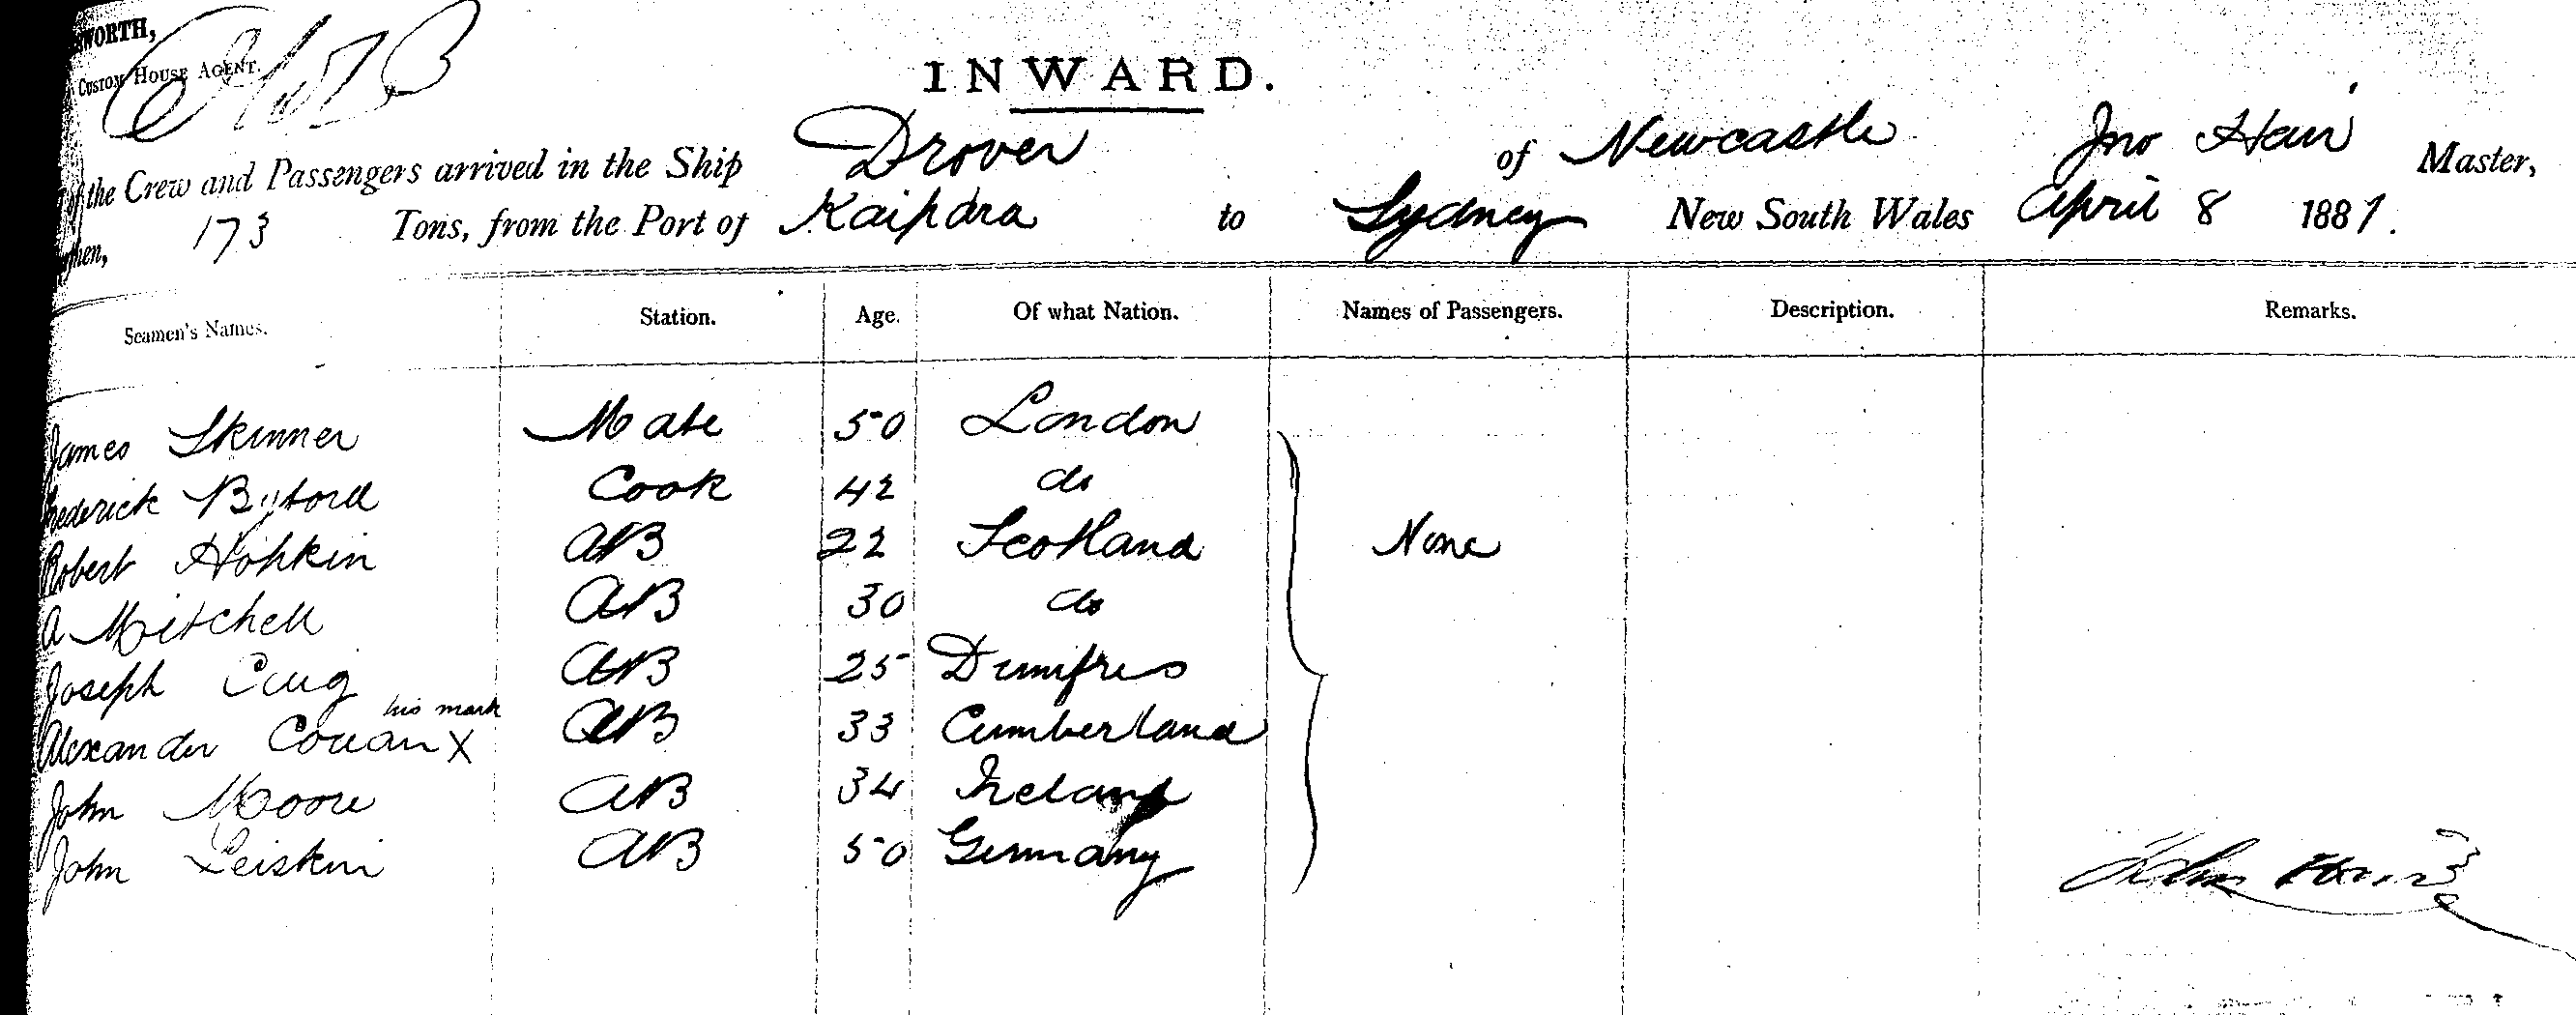 WORTH,
CUSTOM HOUSE AGENT.
INWARD.
of the Crew and Passengers arrived in the Ship Drover of Newcastle Jno Hair Master,
173 Tons, from the Port of Kaipara to Sydney New South Wales April 8 1881.
Seamen's Names. Station. Age. Of what Nation. Names of Passengers. Description. Remarks.
James Skinner Mate 50 London
Frederick Byford Cook 42 do
Robert Hopkin AB 22 Scotland None
A Mitchell AB 30 do
Joseph AB 25 Dumfres
his mark
Alexander Couan X AB 33 Cumberland
John Moore AB 34 Ireland
John Leiskin AB 50 Germany
John Hair